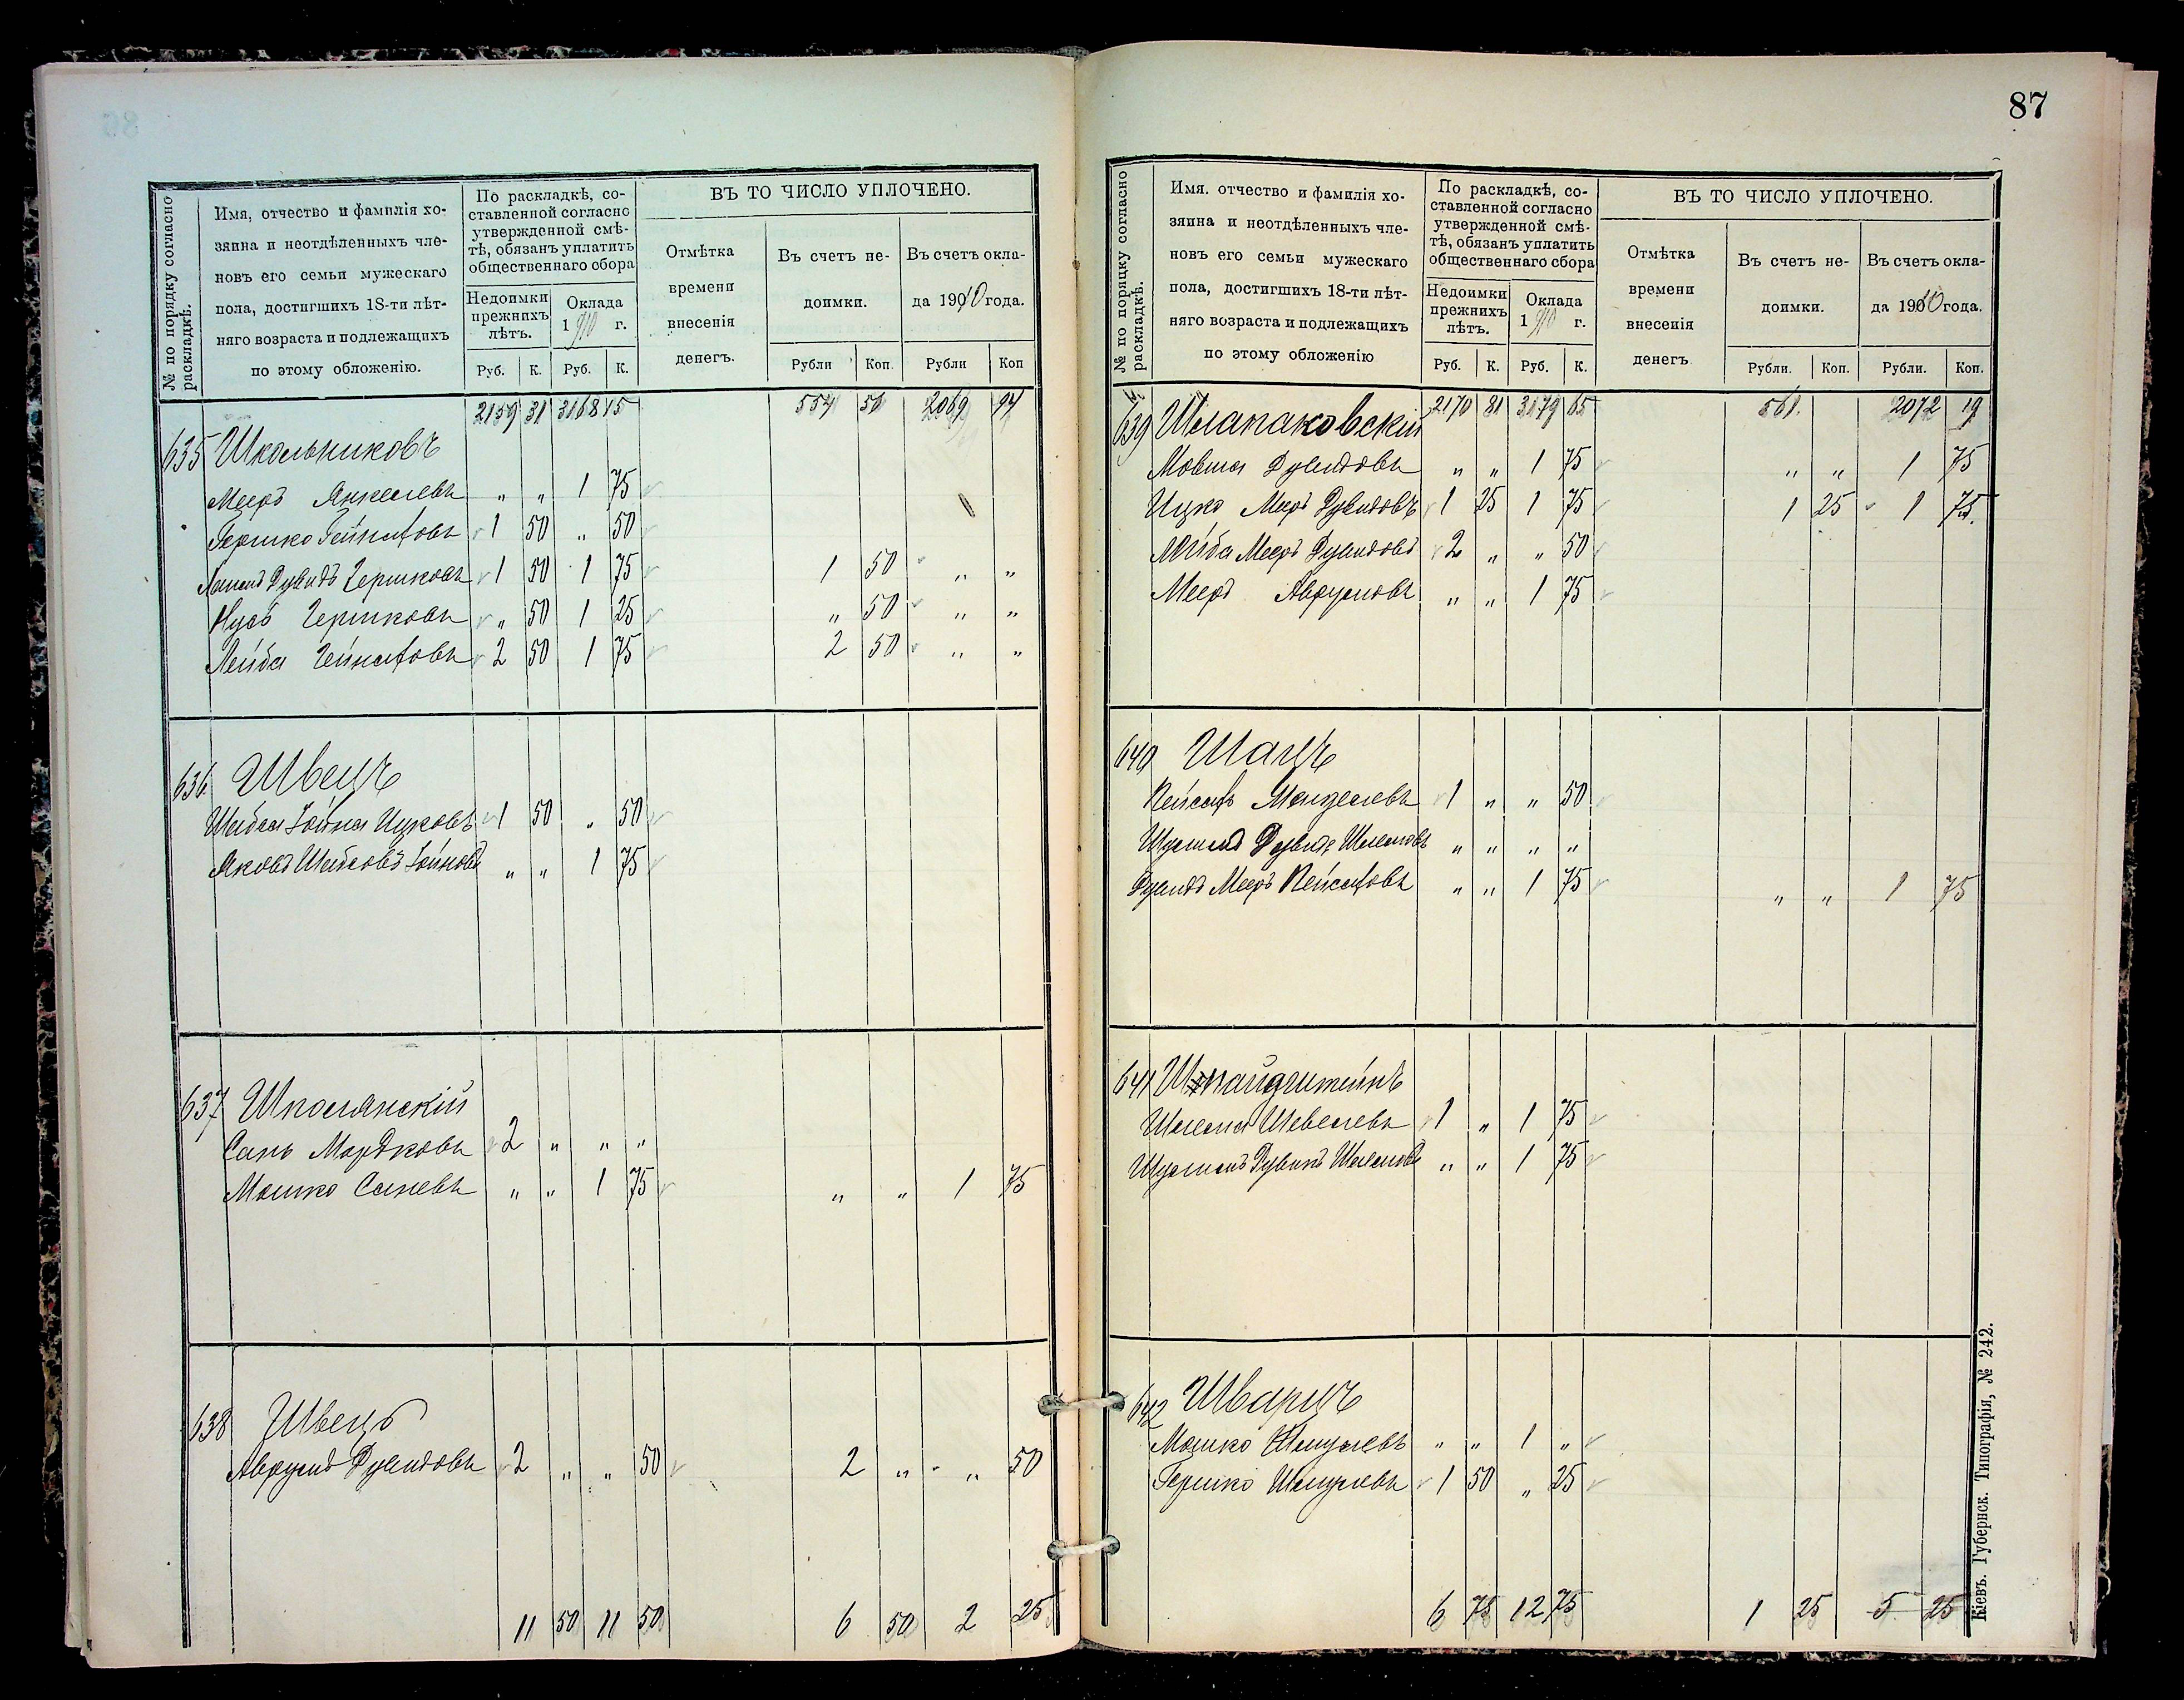 87
№ по порядку согласно раскладкѣ.
Имя, отчество и фамилія хо-
зяина и неотдѣленныхъ чле-
новъ его семьи мужескаго
пола, достигшихъ 18-ти лѣт-
няго возраста и подлежащихъ
по этому обложенію.
По раскладкѣ, со-
ставленной согласно
утвержденной смѣ-
тѣ, обязанъ уплатить
общественнаго сбора
Недоимки прежнихъ лѣтъ.
Оклада 1910 г.
Руб. К. Руб. К.
ВЪ ТО ЧИСЛО УПЛОЧЕНО.
Отмѣтка времени внесенія денегъ.
Въ счетъ не-
доимки.
Въ счетъ окла-
да 1910 года.
Рубли Коп. Рубли Коп
2159 31 3168 15 554 50 2069 94
635 Школьниковъ
Мееръ Янкелевъ " " 1 75
Гершко 1 50 " 50
Дувидъ Гершковъ 1 50 1 75 1 50 " "
Нусъ Гершковъ " 50 1 25 " 50 " "
Лейба 2 50 1 75 2 50 " "
636 Швецъ
Ицковъ 1 50 " 50
Яковъ " " 1 75
637 Шполянскій
Сань Мордковъ 2 " " "
Мошко Саневъ " " 1 75 " " 1 75
638 Швецъ
Аврумъ Дувидовъ 2 " " 50 2 " " 50
11 50 11 50 6 50 2 25
№ по порядку согласно раскладкѣ.
Имя, отчество и фамилія хо-
зяина и неотдѣленныхъ чле-
новъ его семьи мужескаго
пола, достигшихъ 18-ти лѣт-
няго возраста и подлежащихъ
по этому обложенію
По раскладкѣ, со-
ставленной согласно
утвержденной смѣ-
тѣ, обязанъ уплатить
общественнаго сбора
Недоимки прежнихъ лѣтъ.
Оклада 1910 г.
Руб. К. Руб. К.
ВЪ ТО ЧИСЛО УПЛОЧЕНО.
Отмѣтка времени внесенія денегъ
Въ счетъ не-
доимки.
Въ счетъ окла-
да 1910 года.
Рубли. Коп. Рубли. Коп.
2170 81 3179 65 561. 2072 19
639 Шлапаковскій
Мовша Дувидовъ " " 1 75 " " 1 75
Ицко Меер Дувидовъ 1 25 1 75 1 25 1 75.
Лейба Мееръ Дувидовъ 2 " " 50
Мееръ Аврумовъ " " 1 75
640 Шацъ
1 " " 50
Дувидъ " " " "
Дувидъ Мееръ " " 1 75 " " 1 75
641
Шевелевъ 1 " 1 75
" " 1 75
642 Шварцъ
Мошко Шмулевъ " " 1 "
Гершко Шмулевъ 1 50 " 25
6 75 12 75 1 25 5 25
Кіевъ. Губернск. Типографія, № 242.